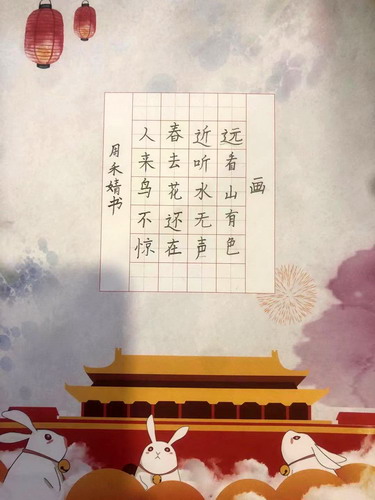 画
远看山有色
近听水无声
春去花还在
人来鸟不惊
周禾婧书